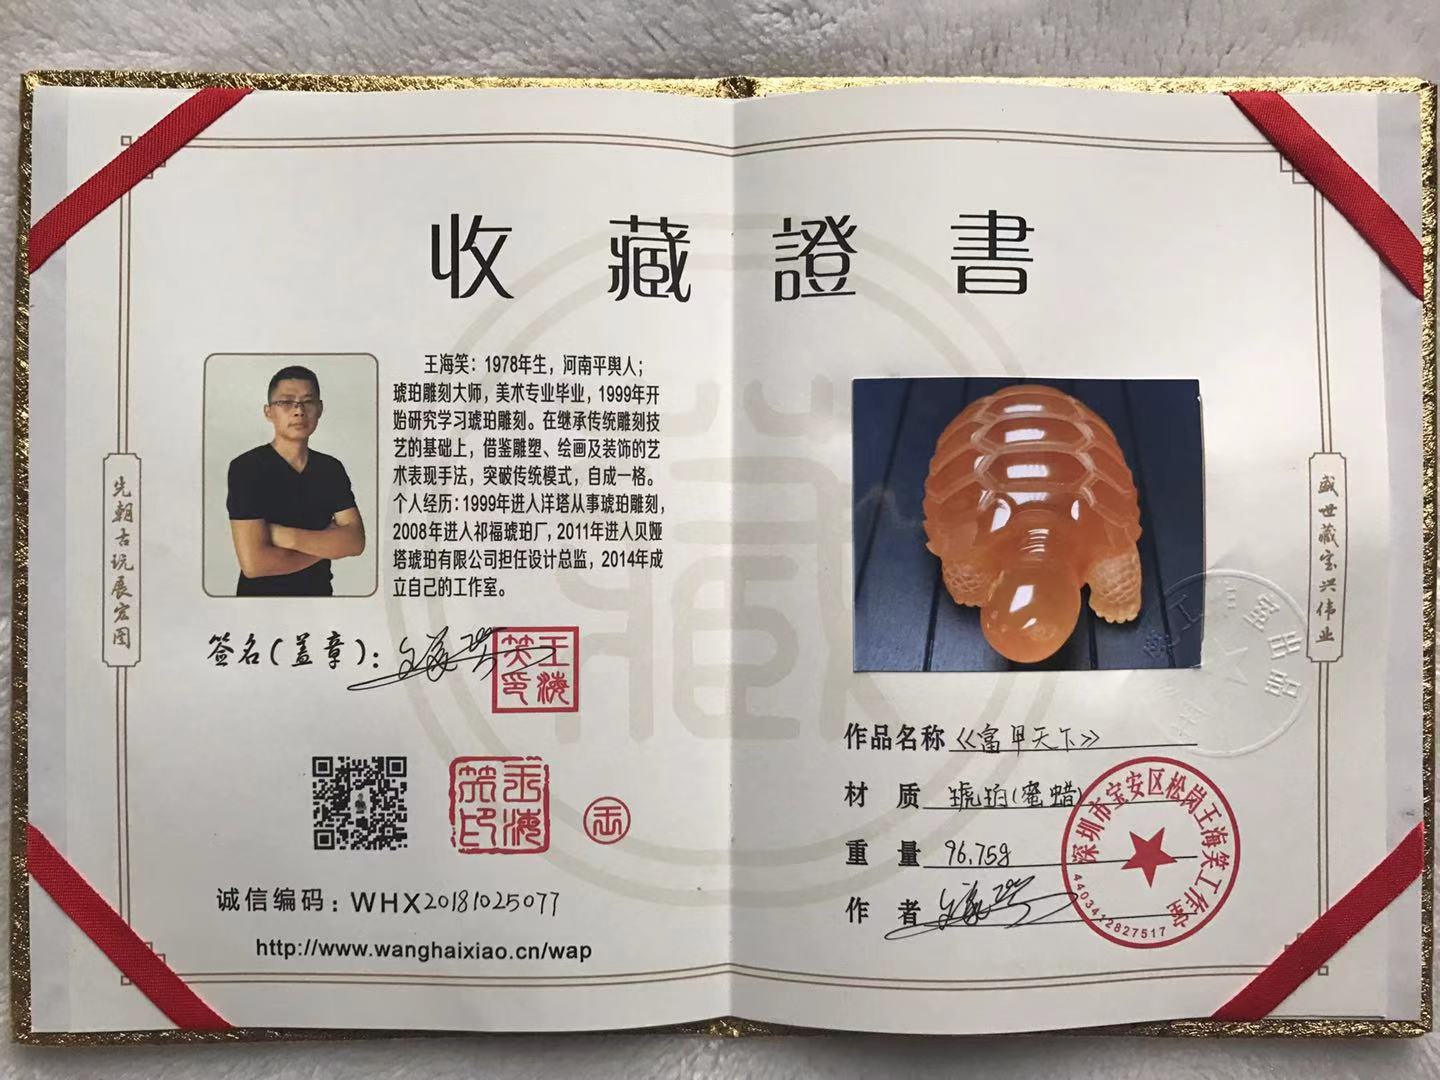 收藏證書
王海笑：1978年生，河南平舆人；
琥珀雕刻大师，美术专业毕业，1999年开
始研究学习琥珀雕刻。在继承传统雕刻技
艺的基础上，借鉴雕塑、绘画及装饰的艺
术表现手法，突破传统模式，自成一格。
个人经历：1999年进入洋塔从事琥珀雕刻，
2008年进入祁福琥珀厂，2011年进入贝娅
塔琥珀有限公司担任设计总监，2014年成
立自己的工作室。
先朝古玩展宏图
签名(盖章)：
王海笑印
王海笑印
诚信编码：WHX20181025077
http://www.wanghaixiao.cn/wap
盛世藏宝兴伟业
作品名称《富甲天下》
材 质 琥珀(蜜蜡)
重 量 96.75g
作 者
深圳市宝安区松岗王海笑工作室
4403412827517